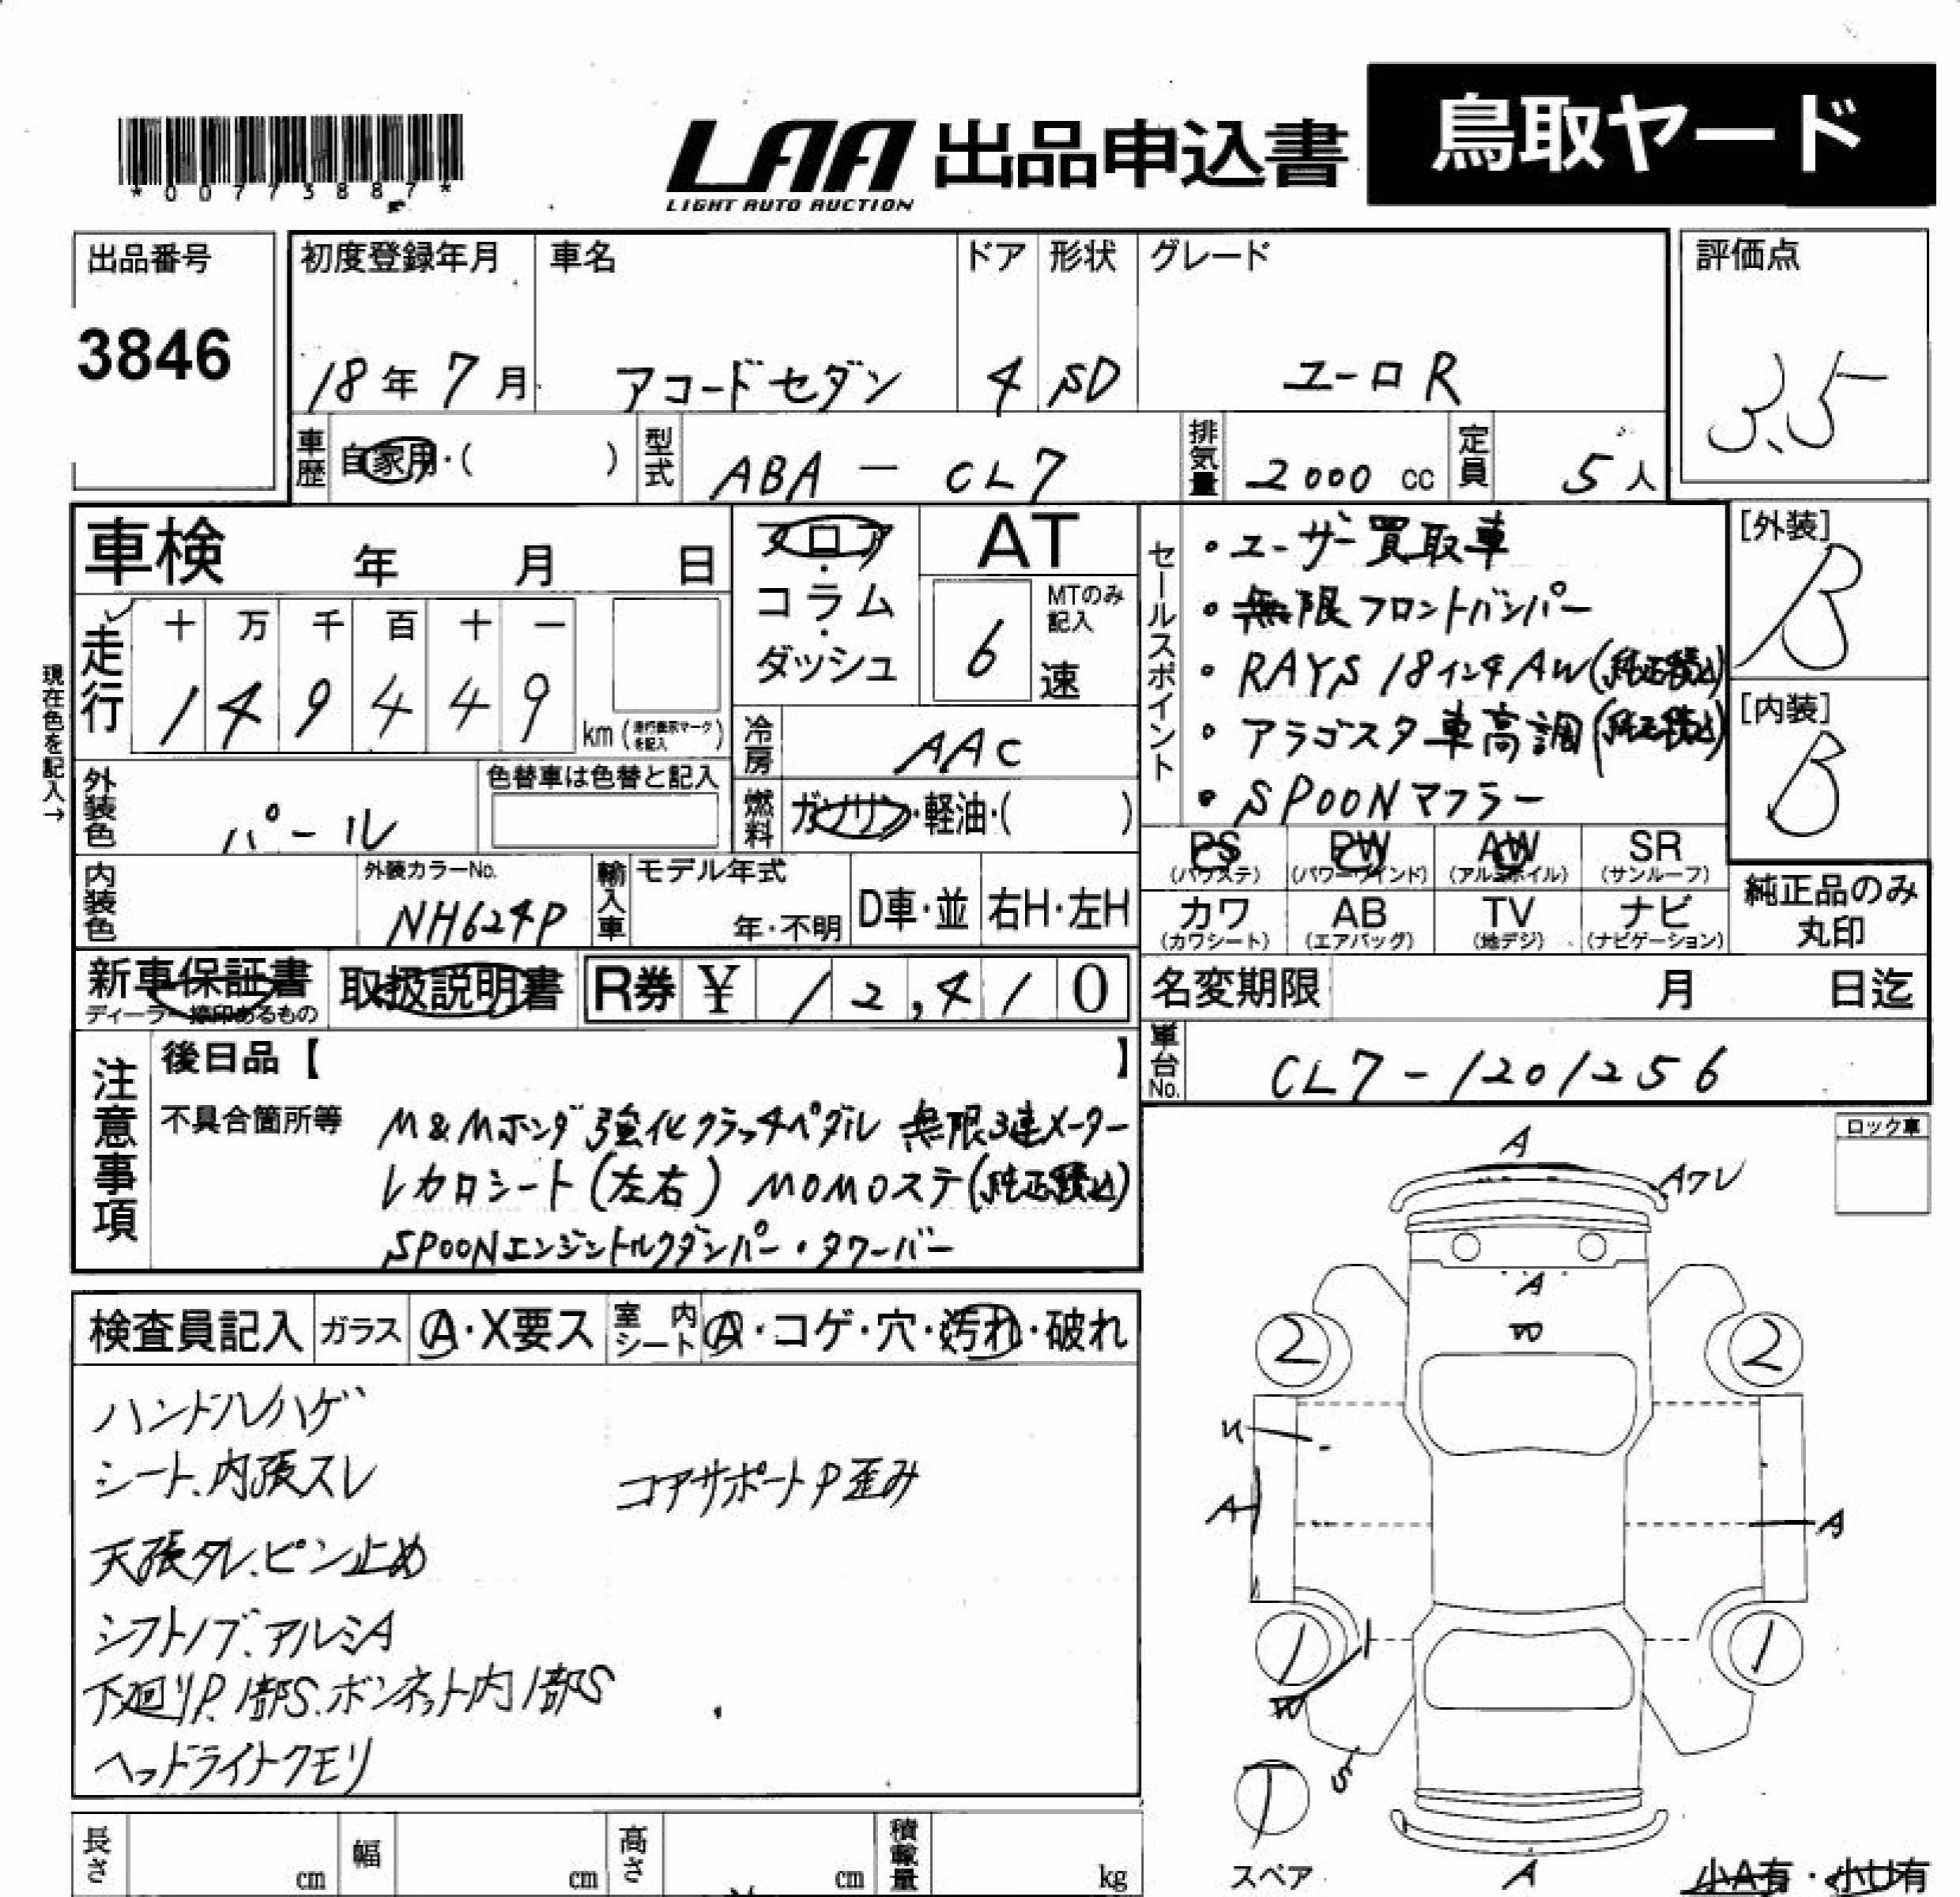 LAA 出品申込書 鳥取ヤード
LIGHT AUTO AUCTION
*00773887*
出品番号
3846
初度登録年月 車名 ドア 形状 グレード
18年7月 アコードセダン 4 SD ユーロR
評価点
3.5
車歴 自家用・( ) 型式 ABA-CL7 排気量 2000cc 定員 5人
車検 年 月 日
フロア・コラム・ダッシュ
AT
6速
MTのみ記入
走行
十 万 千 百 十 一
1 4 9 4 4 9 km(走行表示マークを記入)
現在色を記入→
冷房 AAC
外装色 パール
色替車は色替と記入
燃料 ガソリン・軽油・( )
内装色
外装カラーNo.
NH624P
輸入車 モデル年式 年・不明 D車・並 右H・左H
セールスポイント
・ユーザー買取車
・無限フロントバンパー
・RAYS 18インチAW(純正積込)
・アラゴスタ車高調(純正積込)
・SPOONマフラー
[外装]
B
[内装]
B
PS(パワステ) PW(パワーウインド) AW(アルミホイル) SR(サンルーフ)
カワ(カワシート) AB(エアバッグ) TV(地デジ) ナビ(ナビゲーション)
純正品のみ丸印
新車保証書
ディーラー捺印あるもの
取扱説明書
R券 ¥ 12,410
名変期限 月 日迄
車台No. CL7-1201256
注意事項
後日品【 】
不具合箇所等
M&Mホンダ強化クラッチペダル 無限3連メーター
レカロシート(左右) MOMOステ(純正積込)
SPOONエンジントルクダンパー・タワーバー
ロック車
検査員記入 ガラス A・X要ス 室内シート A・コゲ・穴・汚れ・破れ
ハンドルハゲ
シート、内張スレ コアサポートP歪み
天張タレ、ピン止め
シフトノブ、アルミA
下廻りP、1部S、ボンネット内1部S
ヘッドライトクモリ
A
Aワレ
A
W
2 2
U
A A
1 1
W
S
スペア
A
小A有・小U有
長さ cm 幅 cm 高さ cm 積載量 kg